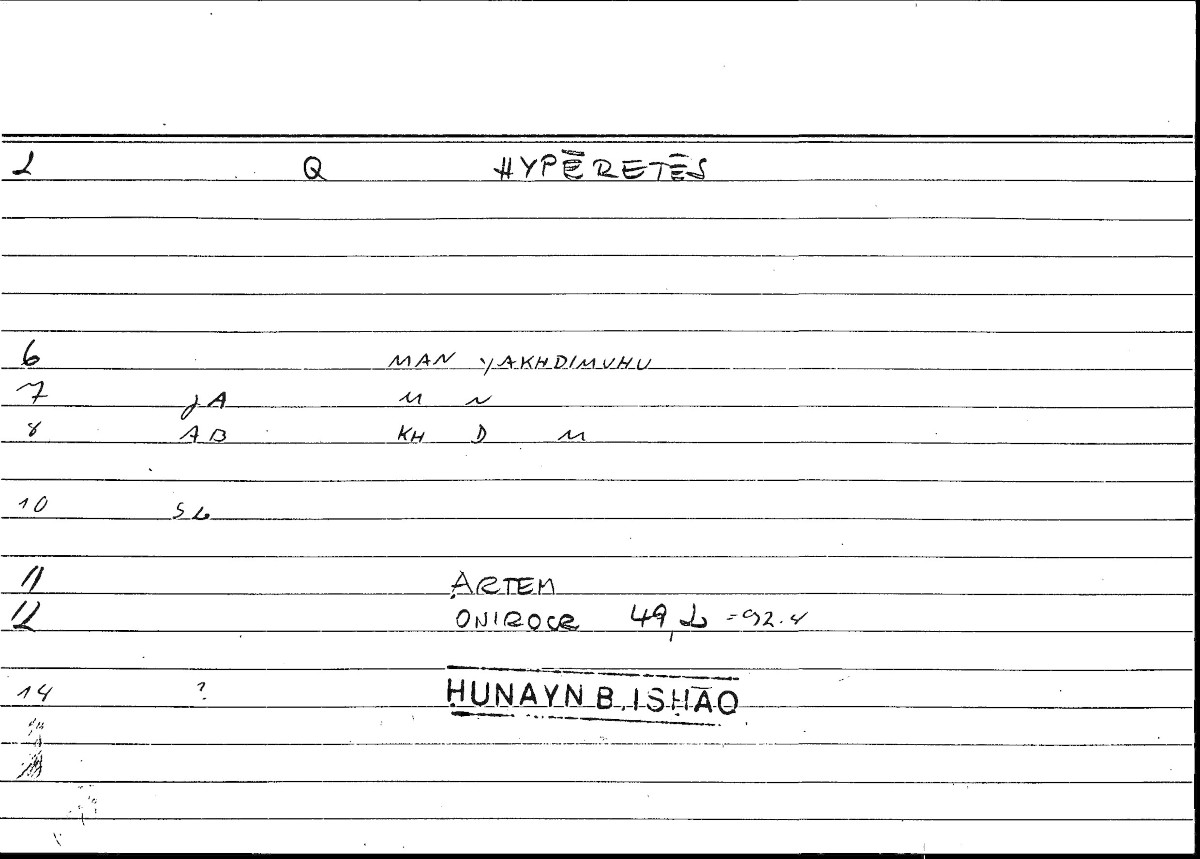 2 Q HYPĒRETĒS
6 MAN YAKHDIMUHU
7 JA M N
8 AB KH D M
10 SL
11 ARTEM
12 ONIROCR 49,2 = 92.4
14 ? ḤUNAYN B. ISḤĀQ